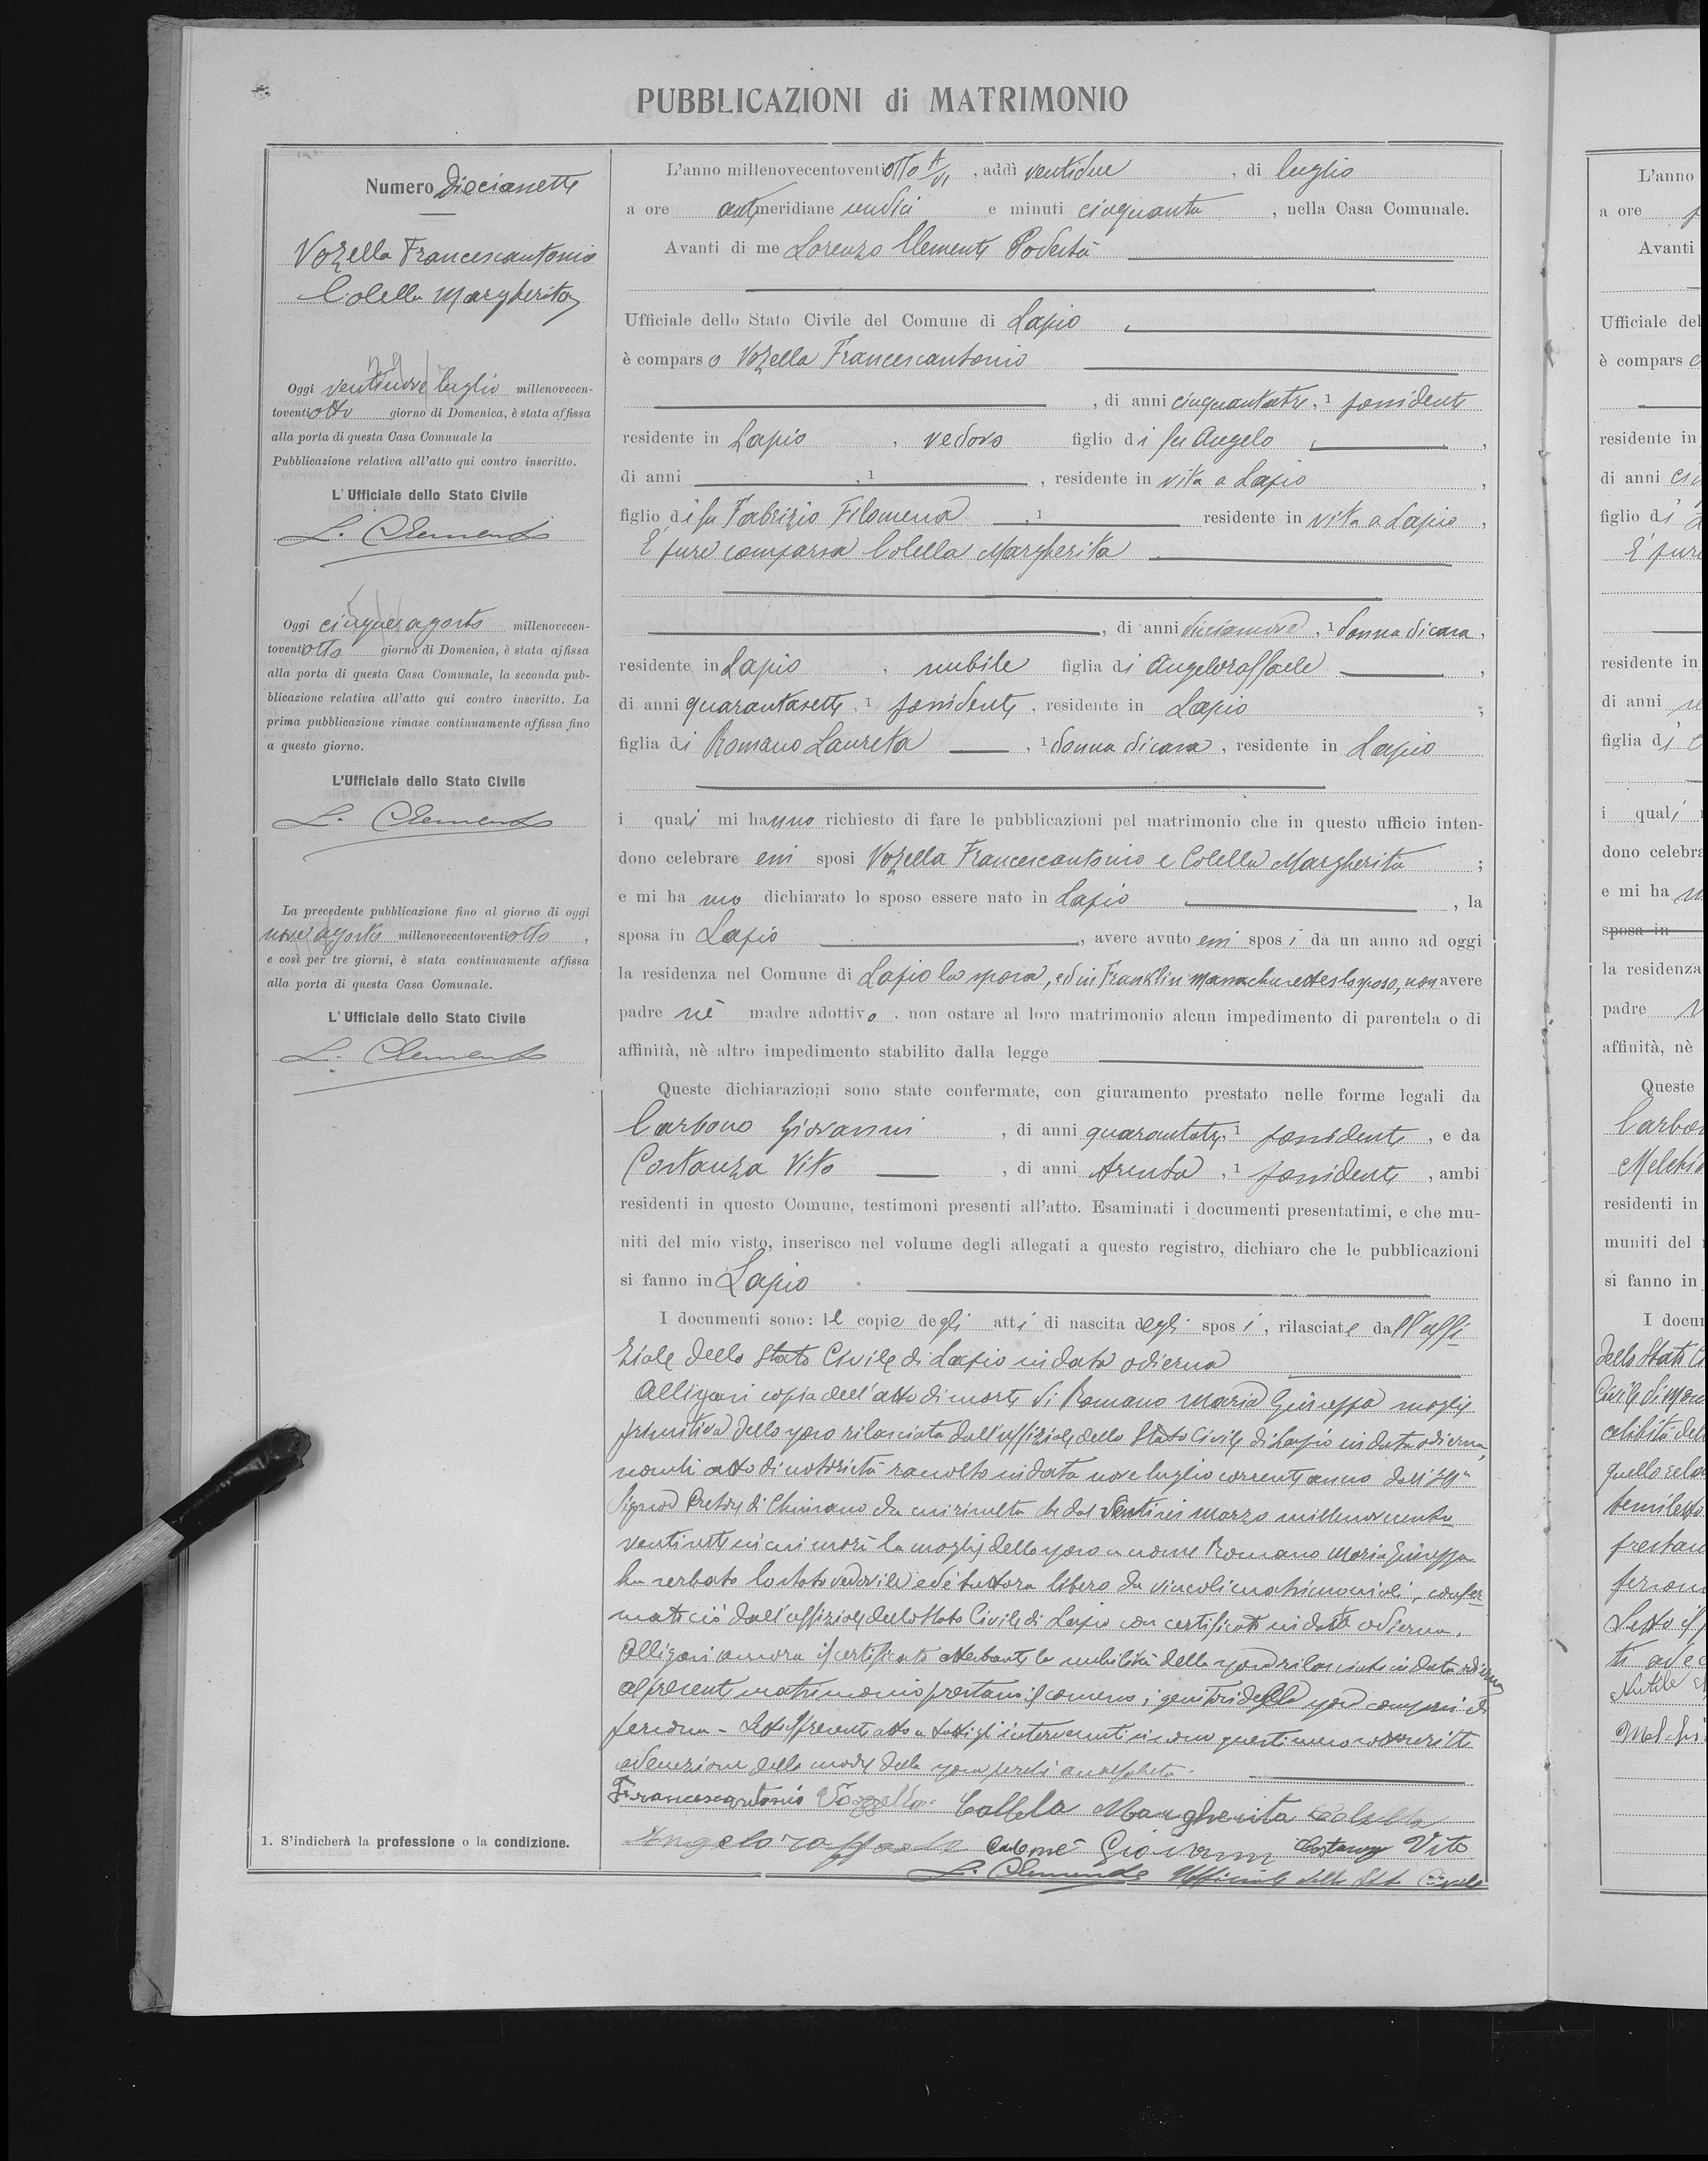 PUBBLICAZIONI di MATRIMONIO
Numero Diecianette
Vozella Francescantonio
Colella Margherita
Oggi ventinove luglio millenovecen-
toventiotto giorno di Domenica, è stata affissa
alla porta di questa Casa Comunale la
Pubblicazione relativa all'atto qui contro inscritto.
L'Ufficiale dello Stato Civile
L. Clemente
Oggi cinque agosto millenovecen-
toventiotto giorno di Domenica, è stata affissa
alla porta di questa Casa Comunale, la seconda pub-
blicazione relativa all'atto qui contro inscritto. La
prima pubblicazione rimase continuamente affissa fino
a questo giorno.
L'Ufficiale dello Stato Civile
L. Clemente
La precedente pubblicazione fino al giorno di oggi
nove agosto millenovecentoventiotto,
e così per tre giorni, è stata continuamente affissa
alla porta di questa Casa Comunale.
L'Ufficiale dello Stato Civile
L. Clemente
1. S'indicherà la professione o la condizione.
L'anno millenovecentoventiotto A/VI, addì ventidue, di luglio
a ore antimeridiane undici e minuti cinquanta, nella Casa Comunale.
Avanti di me Lorenzo Clemente Podestà
Ufficiale dello Stato Civile del Comune di Lapio
è comparso Vozella Francescantonio
, di anni cinquantatre, 1 possidente
residente in Lapio, vedovo figlio di fu Angelo,
di anni , 1 , residente in vita a Lapio,
figlio di fu Fabrizio Filomena , 1 residente in vita a Lapio,
E' pure comparsa Colella Margherita
, di anni diecianove, 1 donna di casa,
residente in Lapio, nubile figlia di Angeloraffaele,
di anni quarantasette, 1 possidente, residente in Lapio;
figlia di Romano Laureta , 1 donna di casa, residente in Lapio
i quali mi hanno richiesto di fare le pubblicazioni pel matrimonio che in questo ufficio inten-
dono celebrare essi sposi Vozella Francescantonio e Colella Margherita;
e mi hanno dichiarato lo sposo essere nato in Lapio, la
sposa in Lapio, avere avuto essi sposi da un anno ad oggi
la residenza nel Comune di Lapio la sposa, ed in Franklin Massachussettes lo sposo, non avere
padre nè madre adottivo. non ostare al loro matrimonio alcun impedimento di parentela o di
affinità, nè altro impedimento stabilito dalla legge
Queste dichiarazioni sono state confermate, con giuramento prestato nelle forme legali da
Carbone Giovanni, di anni quarantatre, 1 possidente, e da
Costanza Vito, di anni trenta, 1 possidente, ambi
residenti in questo Comune, testimoni presenti all'atto. Esaminati i documenti presentatimi, e che mu-
niti del mio visto, inserisco nel volume degli allegati a questo registro, dichiaro che le pubblicazioni
si fanno in Lapio
I documenti sono: le copie degli atti di nascita degli sposi, rilasciate dall'uffi-
ziale dello Stato Civile di Lapio in data odierna
Alligasi copia dell'atto di morte di Romano Maria Giuseppa moglie
primitiva dello sposo rilasciata dall'uffiziale dello Stato Civile di Lapio in data odierna,
nonché atto di notorietà raccolto in data nove luglio corrente anno dall'Ill.
Signor Pretore di Chiusano da cui risulta che dal ventisei marzo millenovecento
ventisette in cui morì la moglie dello sposo a nome Romano Maria Giuseppa
ha serbato lo stato vedovile ed è tuttora libero da vincoli matrimoniali, confer-
mato ciò dall'uffiziale dello Stato Civile di Lapio con certificato in data odierna.
Alligasi ancora il certificato attestante la nubilità della sposa rilasciato in data odierna
Al presente matrimonio prestano il consenso i genitori della sposa comparsi di
persona - Letto il presente atto a tutti gli intervenuti questi meco sottoscritto
ad eccezione della madre della sposa perché analfabeta.
Francescantonio Vozzella Collela Margherita Colella
Angeloraffaele Carbone Giovanni Costanza Vito
L. Clemente Ufficiale dello Stato Civile
L'anno
a ore
Avanti
Ufficiale del
è compars
residente in
di anni
figlio di
E' pure
residente in
di anni
figlia di
i quali
dono celebra
e mi ha
sposa in
la residenza
padre
affinità, nè
Queste
Carbon
Melchi
residenti in
muniti del
si fanno in
I docum
dello Stato
Civile di
celibità del
quello
prestan
person
Letto il